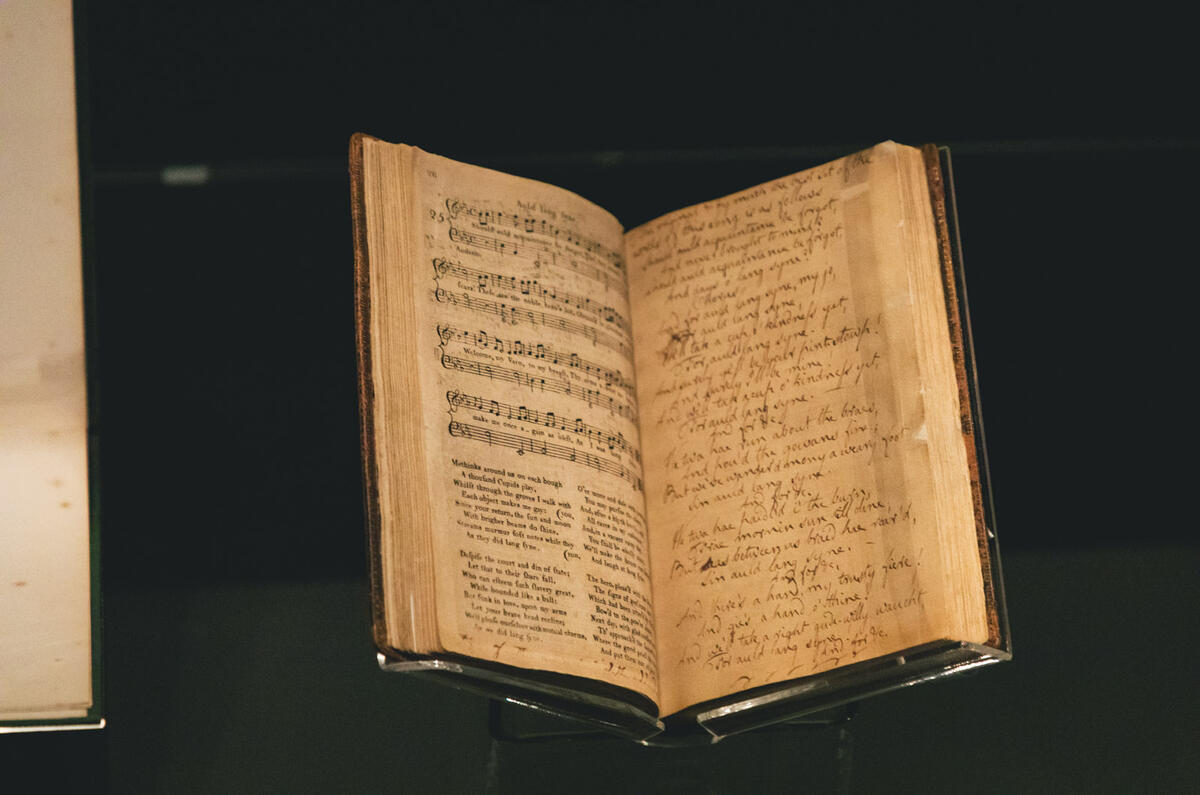 Auld lang syne
25
Should auld acquaintance be forgot,
Andante
fears! These are the noble hero's lot,
Welcome, my Varo, to my breast, Thy arms
make me once a - gain as blest, As I was lang
Methinks around us on each bough
A thousand Cupids play,
Whilst through the groves I walk with
(you,
Each object makes me gay:
Since your return, the sun and moon
With brigher beams do shine,
Streams murmur soft notes while they
(run,
As they did lang syne.
Despise the court and din of state;
Let that to their share fall,
Who can esteem such slavery great,
While bounded like a ball:
But sunk in love, upon my arms
Let your brave head recline;
We'll please ourselves with mutual charms,
As we did lang syne.
O'er moor and dale
You may pursue
And, after a blythe
And in a vacant
You shall be
We'll make the
And laugh at long
The hero, pleas'd with
The signs of
Which had been
Bow'd to the
Next day, with glad
Th' approach'd
Where the good priest
And put them out of
The original & by much the best set of the
words of this song is as follows
Should auld acquaintance be forgot,
And never brought to mind?
Should auld acquaintance be forgot,
And days o' lang syne?
Chorus
For auld lang syne, my jo,
For auld lang syne,
We'll tak a cup o' kindness yet,
For auld lang syne.
And surely ye'll be your pint stowp!
And surely I'll be mine!
And we'll tak a cup o' kindness yet,
For auld lang syne.
And for &c.
We twa hae run about the braes,
And pou'd the gowans fine;
But we've wander'd mony a weary foot
Sin auld lang syne.
And for &c.
We twa hae paidl'd i' the burn,
Frae mornin sun till dine;
But seas between us braid hae roar'd,
Sin auld lang syne.
And for &c.
And there's a hand, my trusty fiere!
And gie's a hand o' thine!
And we'll tak a right gude-willy waught,
For auld lang syne.
And for &c.